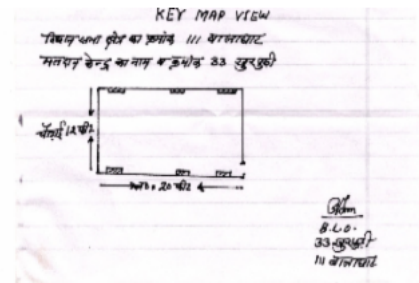 KEY MAP VIEW
विधान सभा क्षेत्र का क्रमांक 111 बालाघाट
मतदान केन्द्र का नाम व क्रमांक 33 खुरसुड़ी
चौड़ाई 12 फीट
लम्बाई 20 फीट
B.L.O.
33 खुरसुड़ी
111 बालाघाट